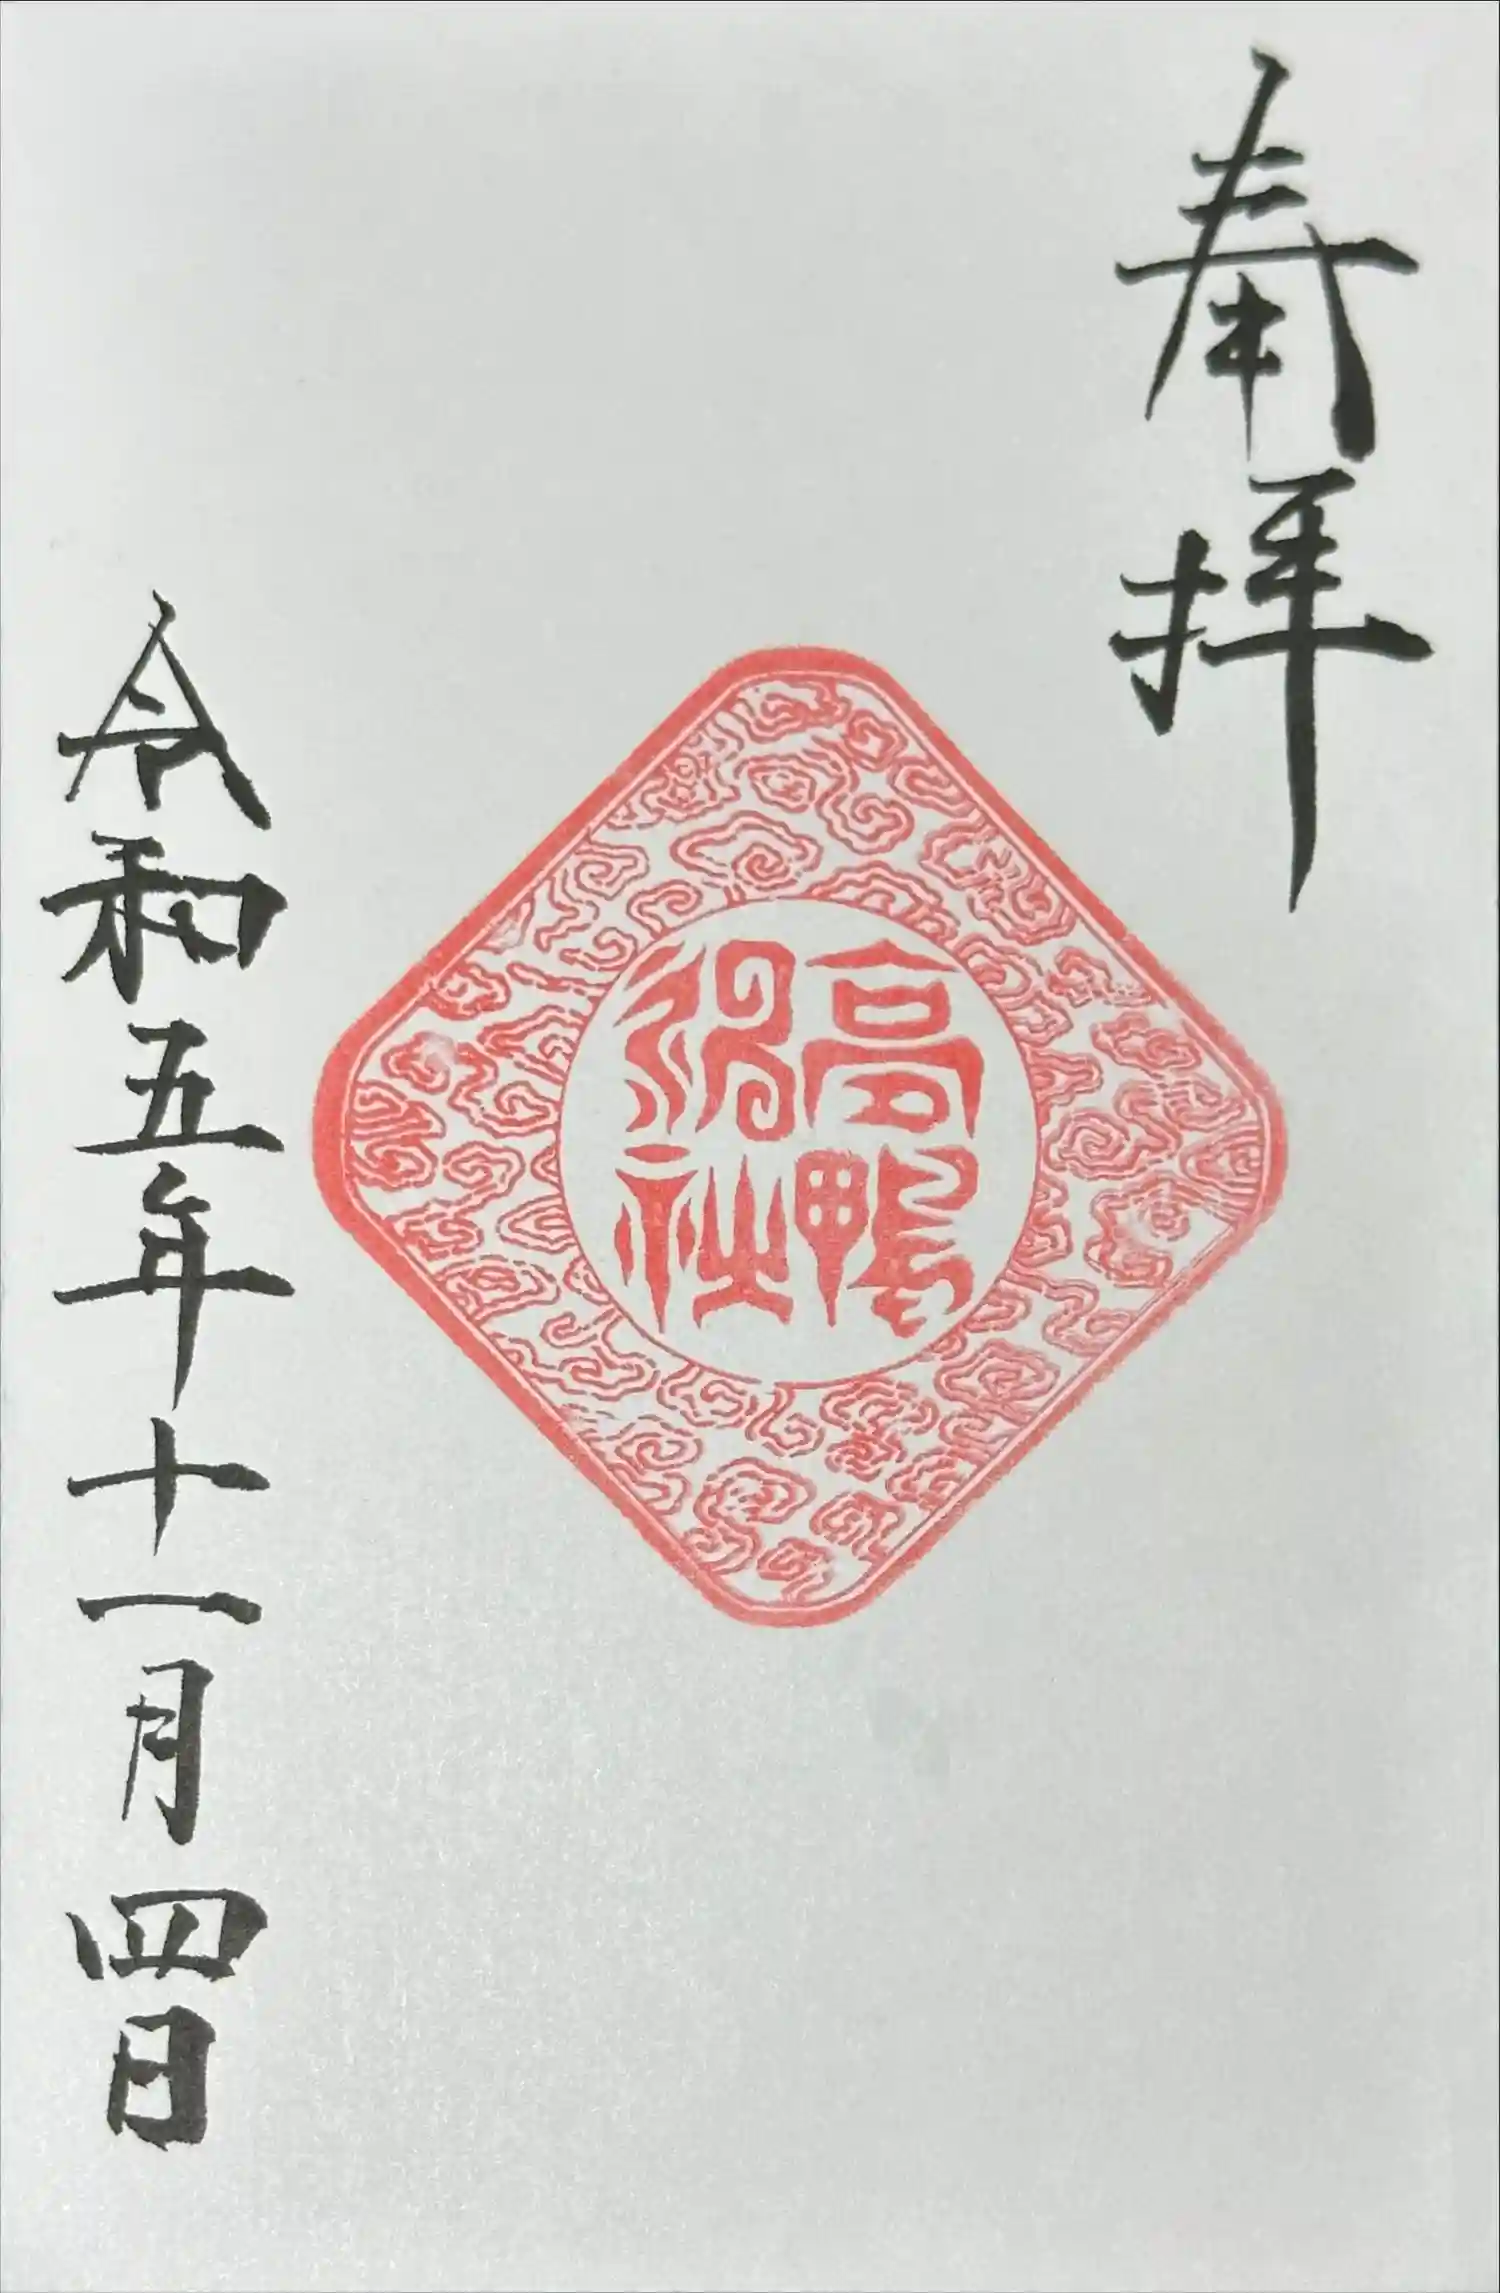 奉拝
高鴨
神社
令和五年十一月四日